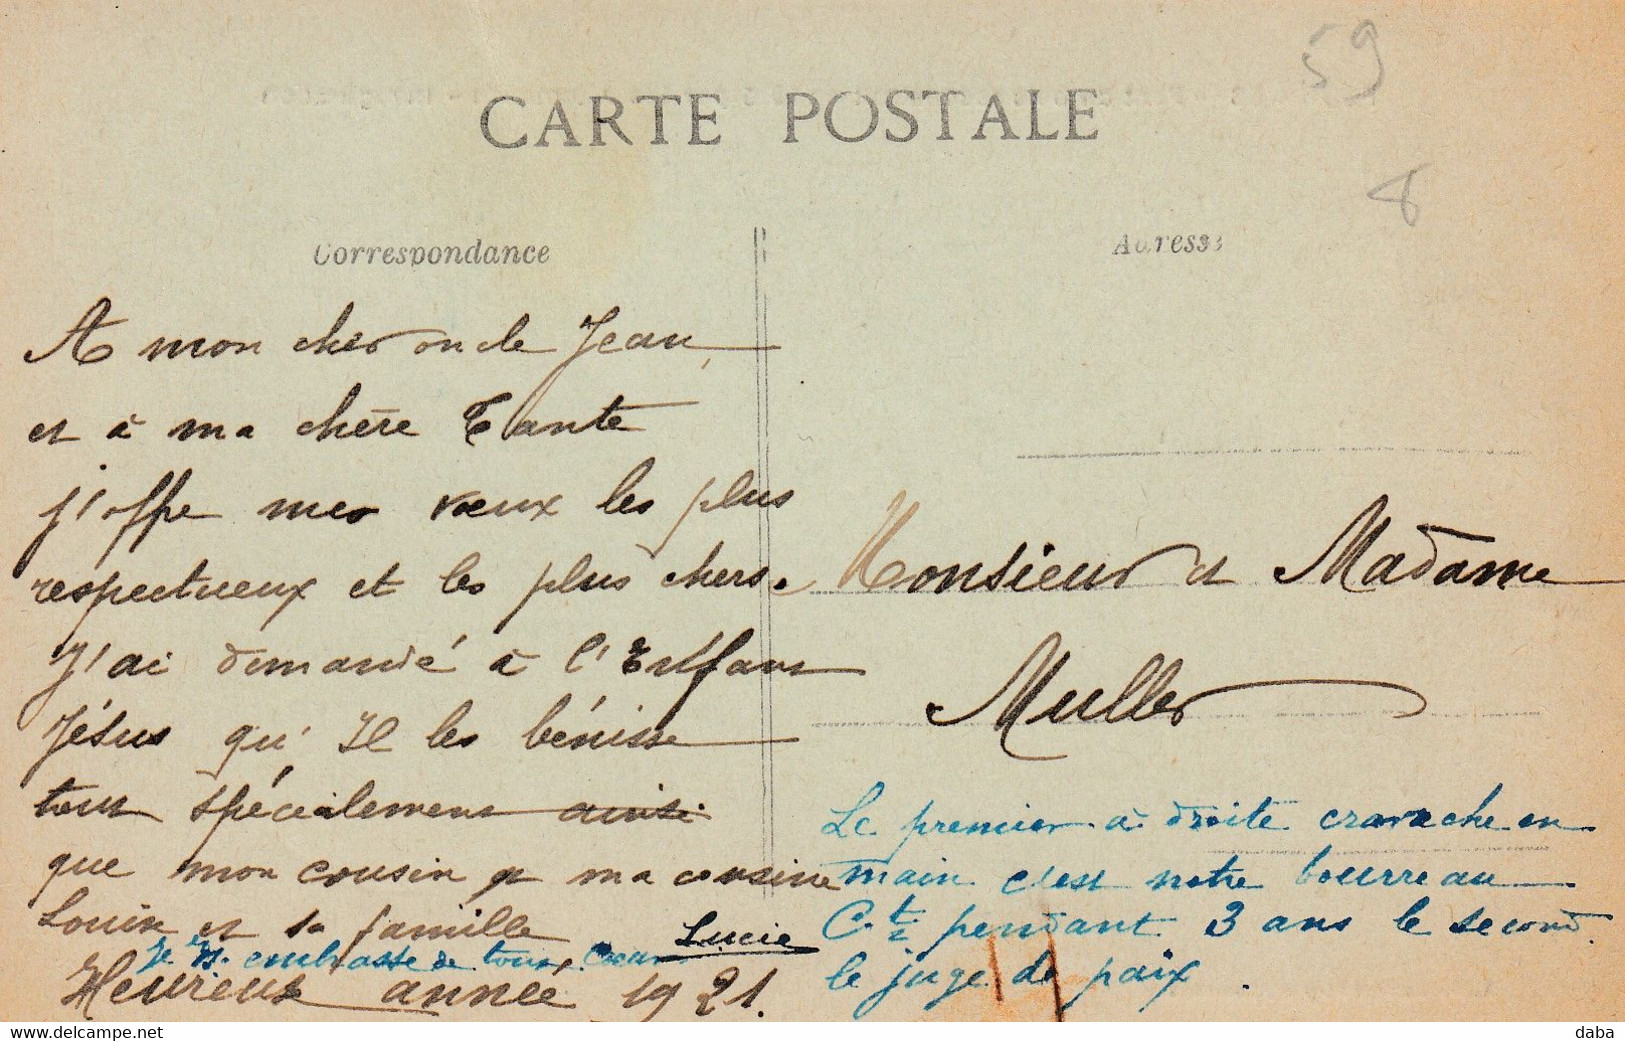 59
CARTE POSTALE
8
Correspondance
Adresse
A mon cher oncle Jean,
et à ma chère Tante
j'offre mes vœux les plus
respectueux et les plus chers.
J'ai demandé à l'Enfant
Jésus qu'Il les bénisse
tout spécialement ainsi
que mon cousin et ma cousine
Louise et sa famille
Je vs. embrasse de tout cœur Lucie
Heureuse année 1921.
Monsieur et Madame
Muller
Le premier à droite cravache en
main c'est notre bourreau
Ct pendant 3 ans le second
le juge de paix.
www.delcampe.net
daba